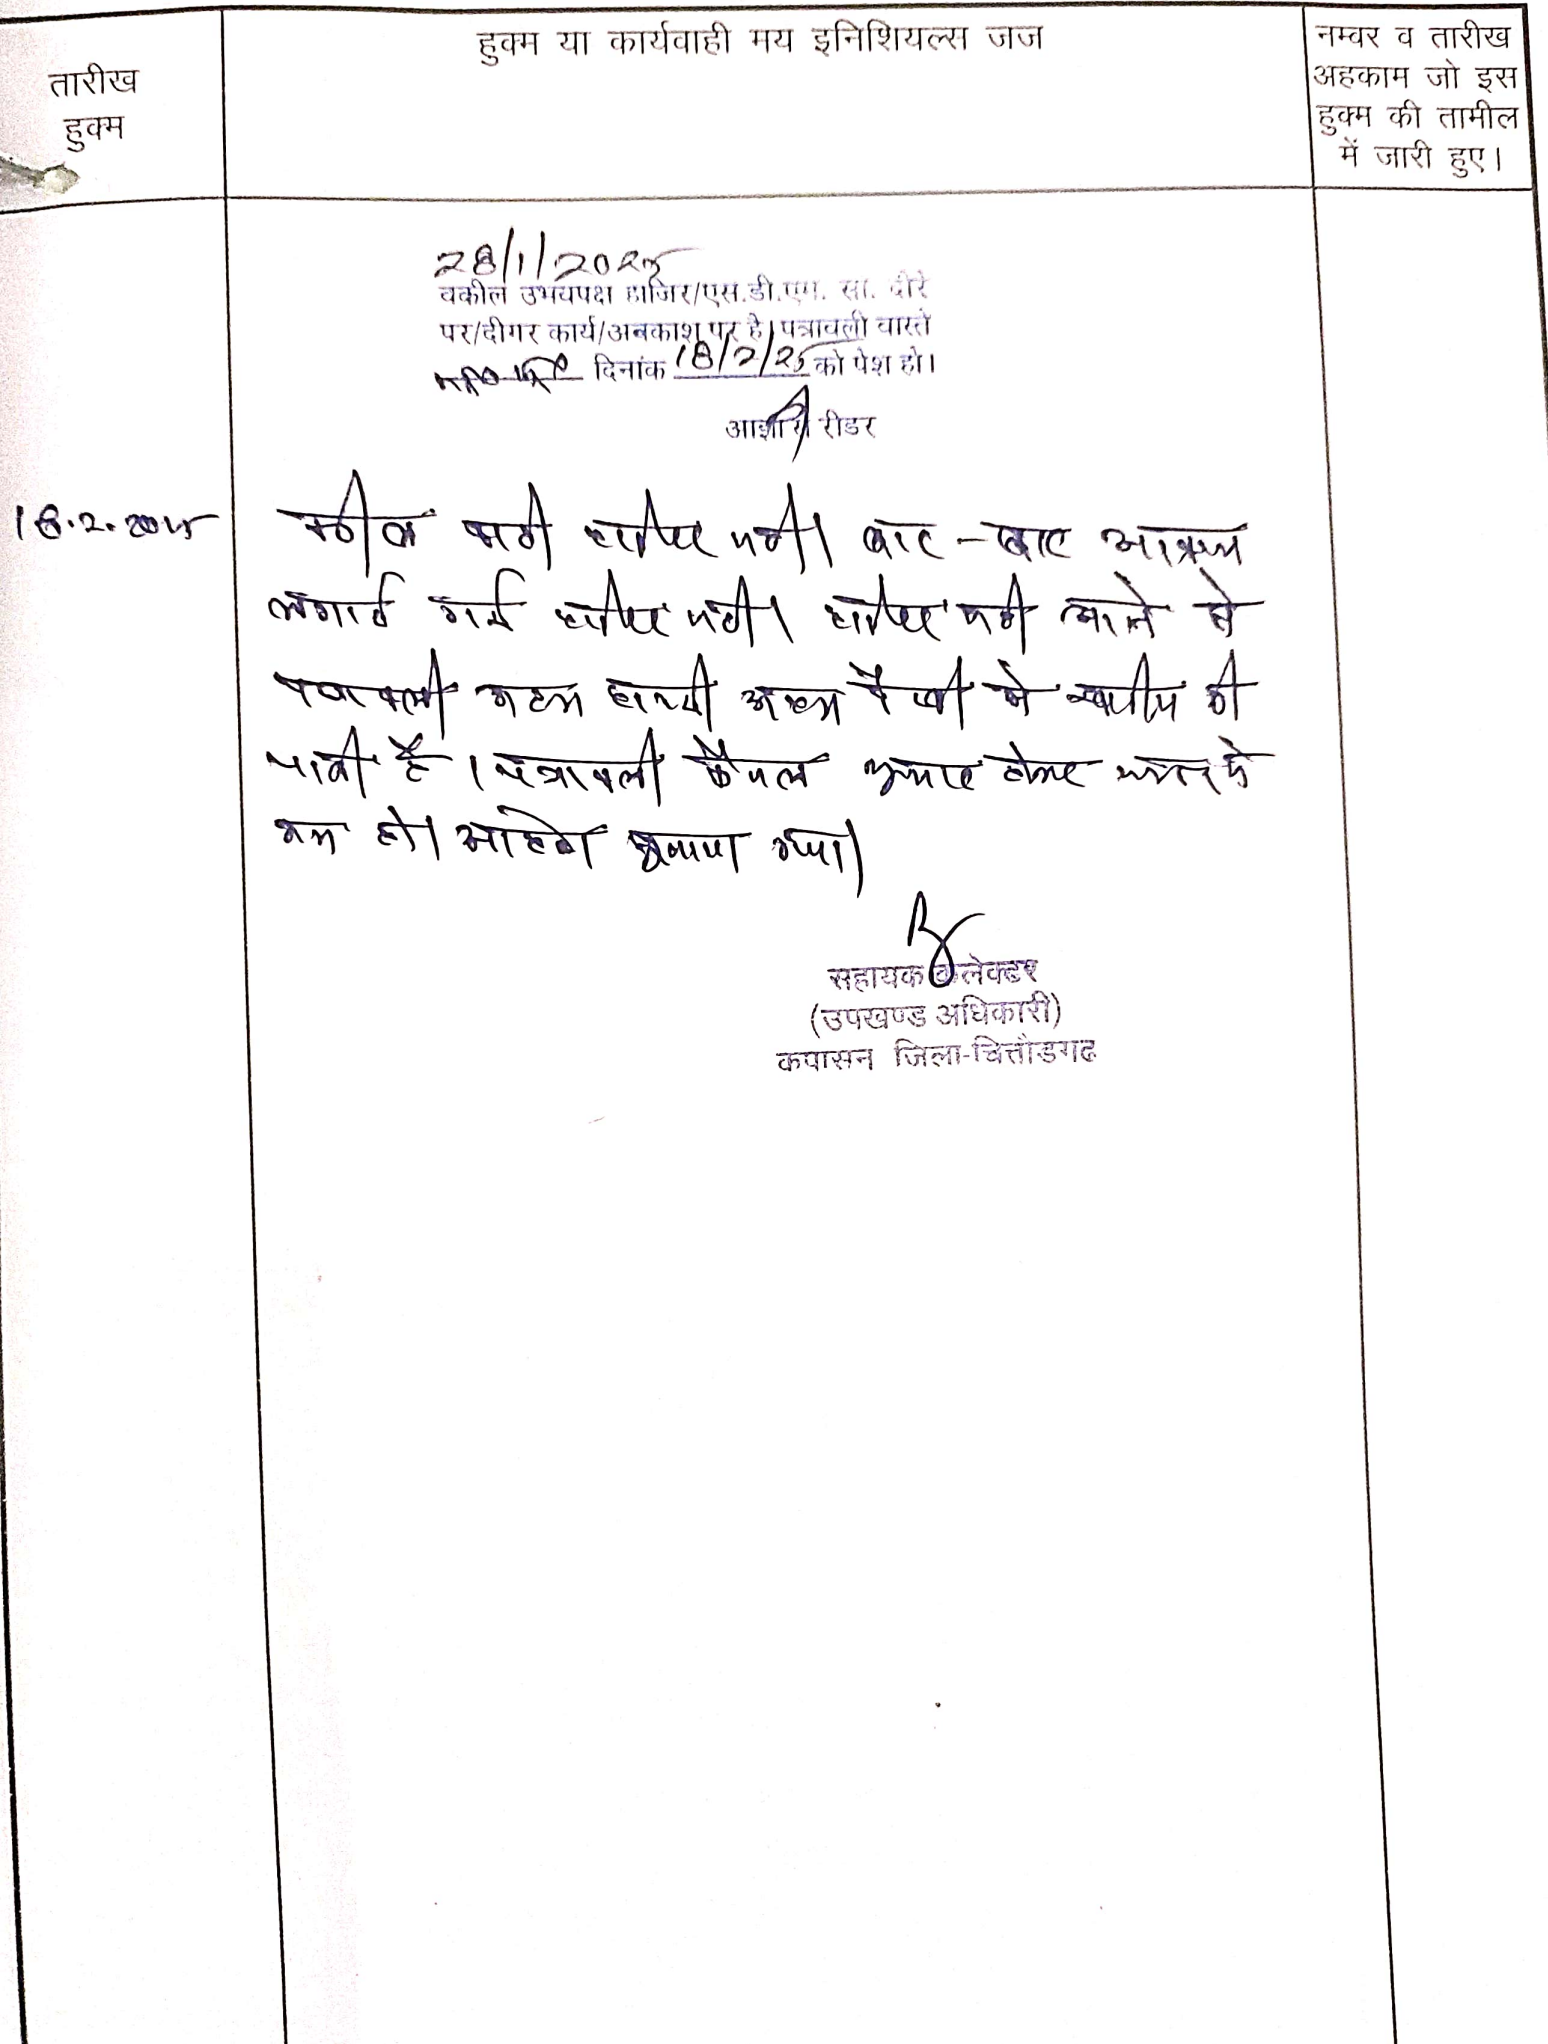 तारीख
हुक्म
हुक्म या कार्यवाही मय इनिशियल्स जज
नम्वर व तारीख
अहकाम जो इस
हुक्म की तामील
में जारी हुए।
28/1/2025
वकील उभयपक्ष हाजिर/एस.डी.एम. सा. दौरे
पर/दीगर कार्य/अवकाश पर है। पत्रावली वास्ते
दिनांक 18/2/25 को पेश हो।
रीडर
18.2.2025
वकील हाजिर नही। बार-बार आवाज
लगाई गई हाजिर नही। हाजिर नही आने से
पत्रावली अदम हाजरी अदम पैरवी मे खारीज की
जाती है। पत्रावली फैसल शुमार होकर
कम हो। आदेश सुनाया गया।
सहायक कलेक्टर
(उपखण्ड अधिकारी)
कपासन जिला-चित्तौडगढ